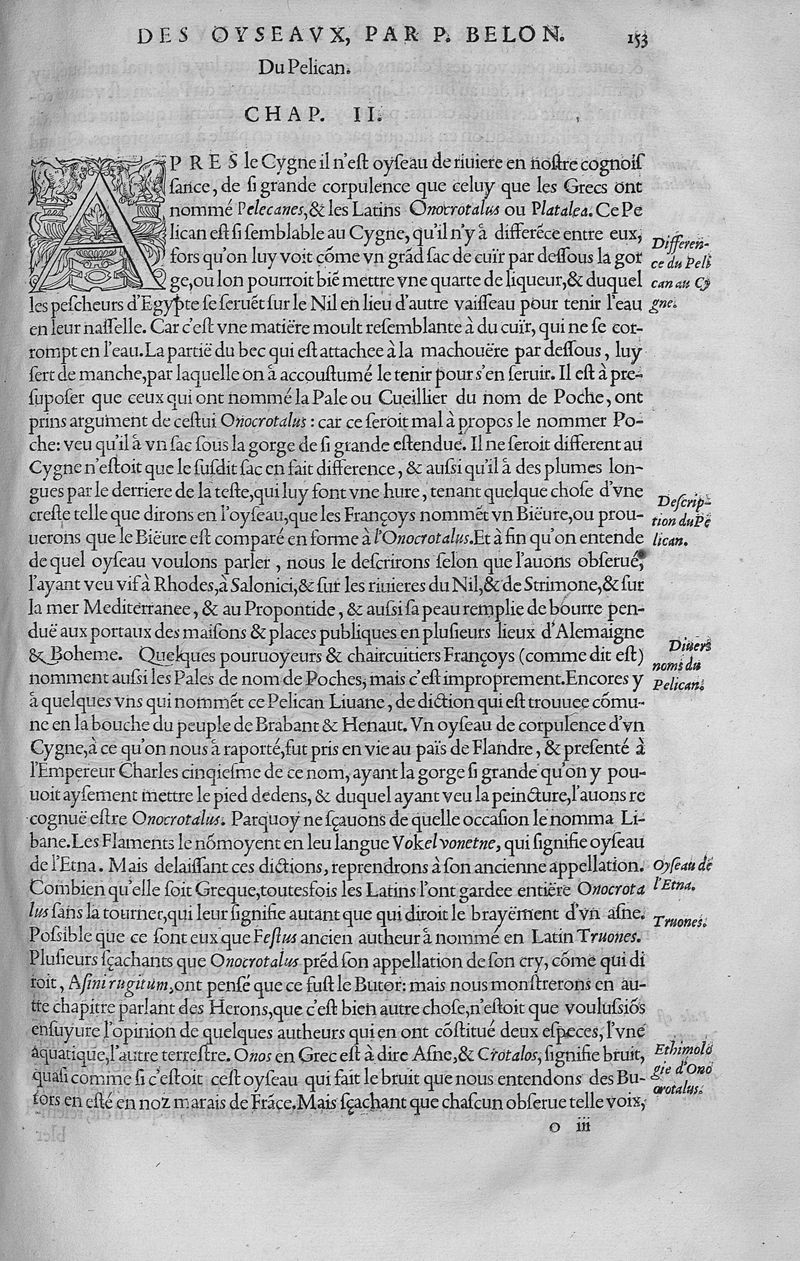 DES OYSEAVX, PAR P. BELON. 153
Du Pelican.
CHAP. II.
APRES le Cygne il n'eſt oyſeau de riuiere en noſtre cognoiſ
ſance, de ſi grande corpulence que celuy que les Grecs ont
nommé Pelecanes, & les Latins Onocrotalus ou Platalea. Ce Pe
lican eſt ſi ſemblable au Cygne, qu'il n'y à differéce entre eux,
fors qu'on luy voit cóme vn grád ſac de cuïr par deſſous la gor
ge, ou lon pourroit bié mettre vne quarte de liqueur, & duquel
les peſcheurs d'Egypte ſe ſeruét ſur le Nil en lieu d'autre vaiſſeau pour tenir l'eau
en leur naſſelle. Car c'eſt vne matiëre moult reſemblante à du cuïr, qui ne ſe cor-
rompt en l'eau. La partië du bec qui eſt attachee à la machouëre par deſſous, luy
ſert de manche, par laquelle on à accouſtumé le tenir pour s'en ſeruir. Il eſt à pre-
ſupoſer que ceux qui ont nommé la Pale ou Cueillier du nom de Poche, ont
prins argument de ceſtui Onocrotalus: car ce ſeroit mal à propos le nommer Po-
che: veu qu'il à vn ſac ſous la gorge de ſi grande eſtenduë. Il ne ſeroit different au
Cygne n'eſtoit que le ſuſdit ſac en fait difference, & auſsi qu'il à des plumes lon-
gues par le derriere de la teſte, qui luy font vne hure, tenant quelque choſe d'vne
creſte telle que dirons en l'oyſeau, que les Françoys nommét vn Biëure, ou prou-
uerons que le Biëure eſt comparé en forme à l'Onocrotalus. Et à fin qu'on entende
de quel oyſeau voulons parler, nous le deſcrirons ſelon que l'auons obſerué,
l'ayant veu vif à Rhodes, à Salonici, & ſur les riuieres du Nil, & de Strimone, & ſur
la mer Mediterranee, & au Propontide, & auſsi ſa peau remplie de bourre pen-
duë aux portaux des maiſons & places publiques en pluſieurs lieux d'Alemaigne
& Boheme. Quelques pouruoyeurs & chaircuitiers Françoys (comme dit eſt)
nomment auſsi les Pales de nom de Poches, mais c'eſt improprement. Encores y
à quelques vns qui nommét ce Pelican Liuane, de diction qui eſt trouuee cómu-
ne en la bouche du peuple de Brabant & Henaut. Vn oyſeau de corpulence d'vn
Cygne, à ce qu'on nous à raporté, fut pris en vie au païs de Flandre, & preſenté à
l'Empereur Charles cinqieſme de ce nom, ayant la gorge ſi grande qu'on y pou-
uoit ayſement mettre le pied dedens, & duquel ayant veu la peincture, l'auons re
cognuë eſtre Onocrotalus. Parquoy ne ſçauons de quelle occaſion le nomma Li-
bane. Les Flaments le nómoyent en leu langue Vokel vonetne, qui ſignifie oyſeau
de l'Etna. Mais delaiſſant ces dictions, reprendrons à ſon ancienne appellation.
Combien qu'elle ſoit Greque, toutesfois les Latins l'ont gardee entiëre Onocrota
lus ſans la tourner, qui leur ſignifie autant que qui diroit le brayëment d'vn aſne.
Poſsible que ce ſont eux que Feſtus ancien autheur à nommé en Latin Truones.
Pluſieurs ſçachants que Onocrotalus préd ſon appellation de ſon cry, cóme qui di
roit, Aſini rugitum, ont penſé que ce fuſt le Butor: mais nous monſtrerons en au-
tre chapitre parlant des Herons, que c'eſt bien autre choſe, n'eſtoit que vouluſsiós
enſuyure l'opinion de quelques autheurs qui en ont cóſtitué deux eſpeces, l'vne
aquatique, l'autre terreſtre. Onos en Grec eſt à dire Aſne, & Crotalos, ſignifie bruit,
quaſi comme ſi c'eſtoit ceſt oyſeau qui fait le bruit que nous entendons des Bu-
tors en eſté en noz marais de Fráce. Mais ſçachant que chaſcun obſerue telle voix,
O iii
Differen-
ce du Peli
can au Cy
gne.
Deſcrip-
tion du Pe
lican.
Diuers
noms du
Pelican.
Oyſeau de
l'Etna.
Truones.
Ethimolo
gie d'Ono
crotalus.